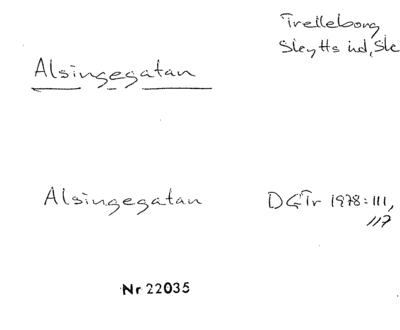 Trelleborg
Skytts hd, Sk
Alsingegatan
Alsingegatan
DGTr 1978: 111,
117
Nr 22035